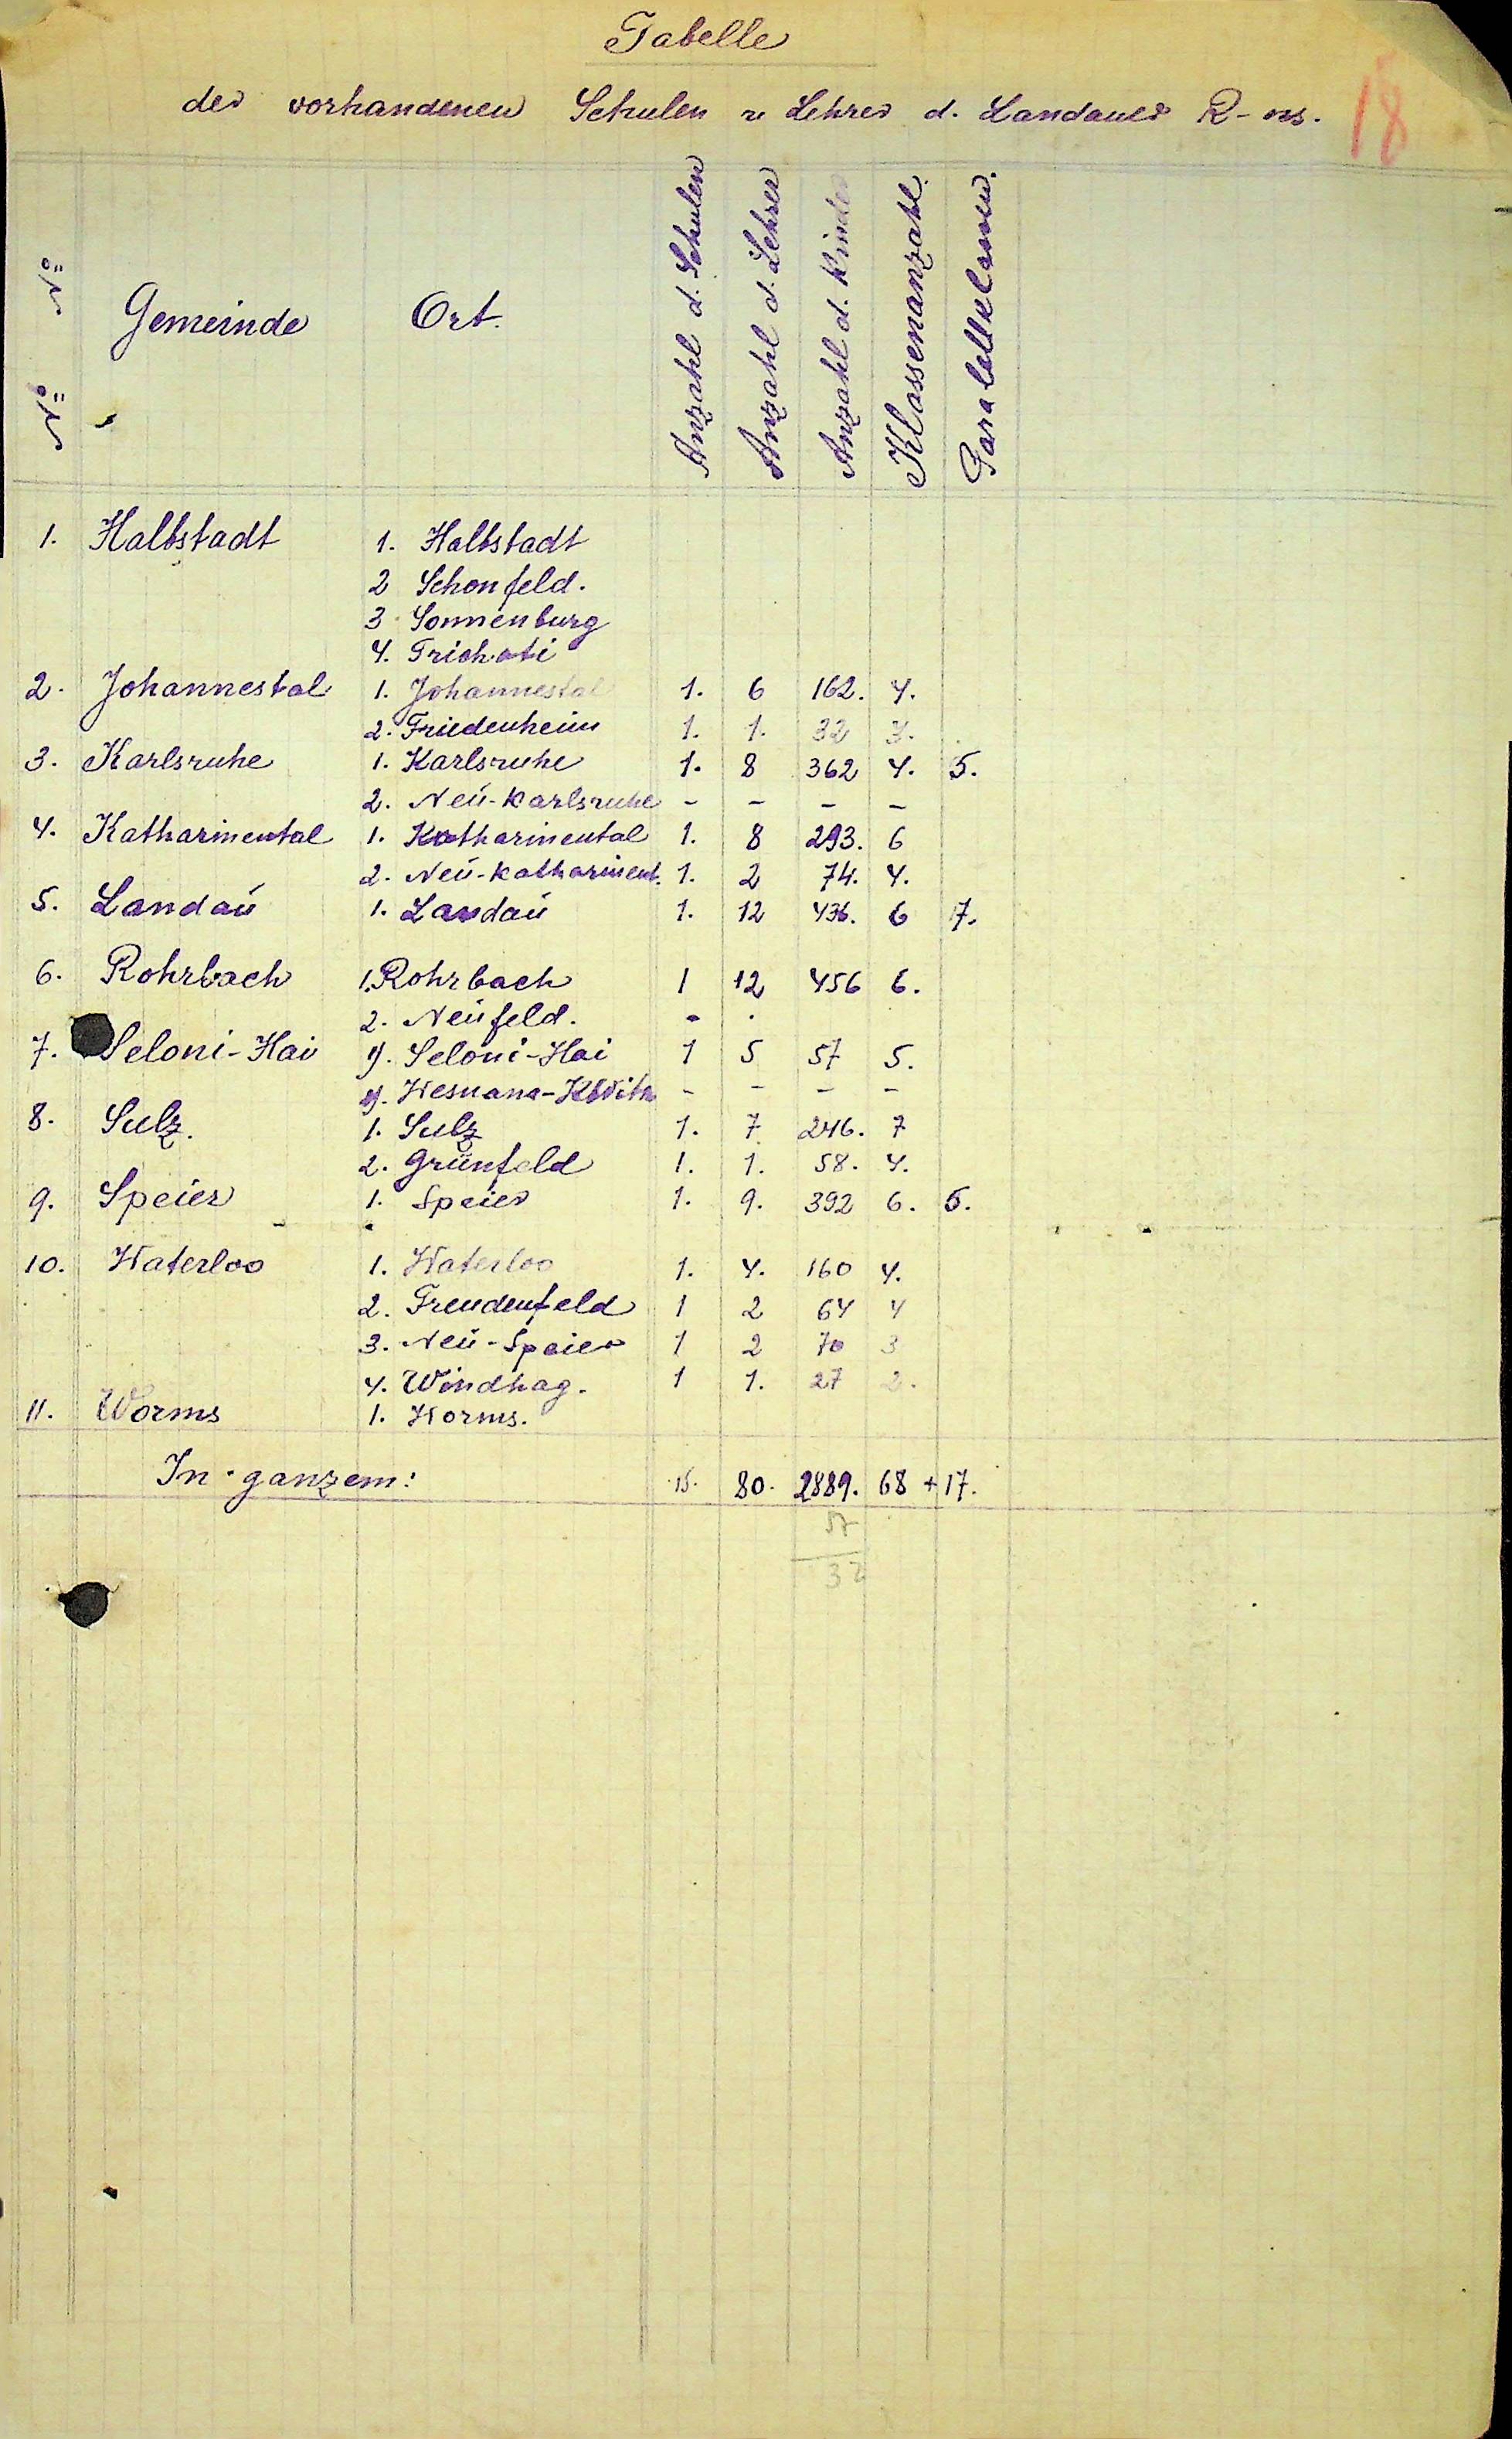 Tabelle
der vorhandenen Schulen u Lehrer d. Landauer R-ns.
18
№ № Gemeinde Ort. Anzahl d. Schulen Anzahl d. Lehrer Anzahl d. Kinder Klassenanzahl. Parallelklassen.
1. Halbstadt 1. Halbstadt
2 Schonfeld.
3. Sonnenburg
4. Trichati
2. Johannestal 1. Johannestal 1. 6 162. 4.
2. Friedenheim 1. 1. 32 3.
3. Karlsruhe 1. Karlsruhe 1. 8 362 4. 5.
2. Neu-Karlsruhe - - - -
4. Katharinental 1. Katharinental 1. 8 293. 6
2. Neu-Katharinent. 1. 2 74. 4.
5. Landau 1. Landau 1. 12 436. 6 7.
6. Rohrbach 1. Rohrbach 1 12 456 6.
2. Neufeld. - .
7. Seloni-Hai 1). Seloni-Hai 1 5 57 5.
2). - - - -
8. Sulz. 1. Sulz 1. 7 246. 7
2. Grünfeld 1. 1. 58. 4.
9. Speier 1. Speier 1. 9. 392 6. 5.
10. Waterloo 1. Waterloo 1. 4. 160 4.
2. Freudenfeld 1 2 64 4
3. Neu-Speier 1 2 70 3
4. Windhag. 1 1. 27 2.
11. Worms 1. Worms.
In ganzem: 15. 80. 2889. 68 + 17.
57
32